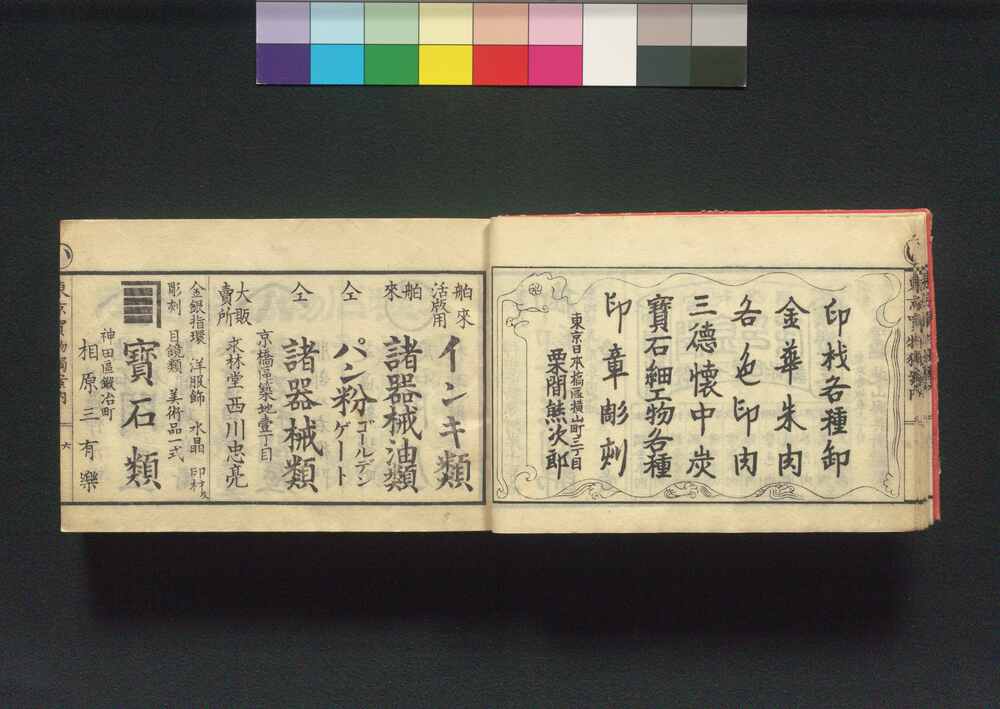 印材各種卸
金華朱肉
各色印肉
三德懷中炭
寶石細工物各種
印章彫刻
東京日本橋區橫山町三丁目
栗間熊次郎
舶來
活版用
インキ類
舶來
諸器械油類
仝
パン粉
ゴールデン
ゲート
仝
諸器械類
京橋區築地壹丁目
大販賣所
求林堂 西川忠亮
金銀指環 洋服飾 水晶 印材
彫刻 目鏡類 美術品一式
寶石類
神田區鍛冶町
相原三有樂
六